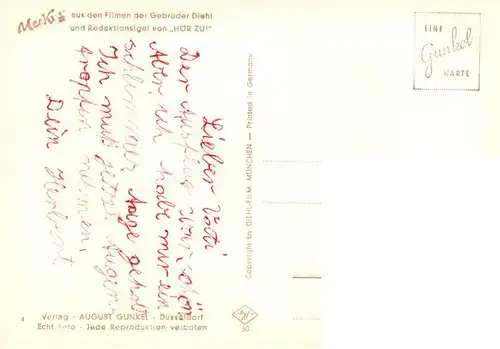 Mecki
aus den Filmen der Gebrüder Diehl
und Redaktionsigel von „HÖR ZU!"
EINE
Gunkel
KARTE
Lieber Vati
Der Ausflug war schön
Aber ich habe mir ein
schlimmes Auge geholt
Ich muß jetzt Augen-
tropfen nehmen.
Dein Herbert
Copyright by DIEHL-FILM, MÜNCHEN — Printed in Germany
4
Verlag - AUGUST GUNKEL - Düsseldorf
Echt Foto - Jede Reproduktion verboten
50